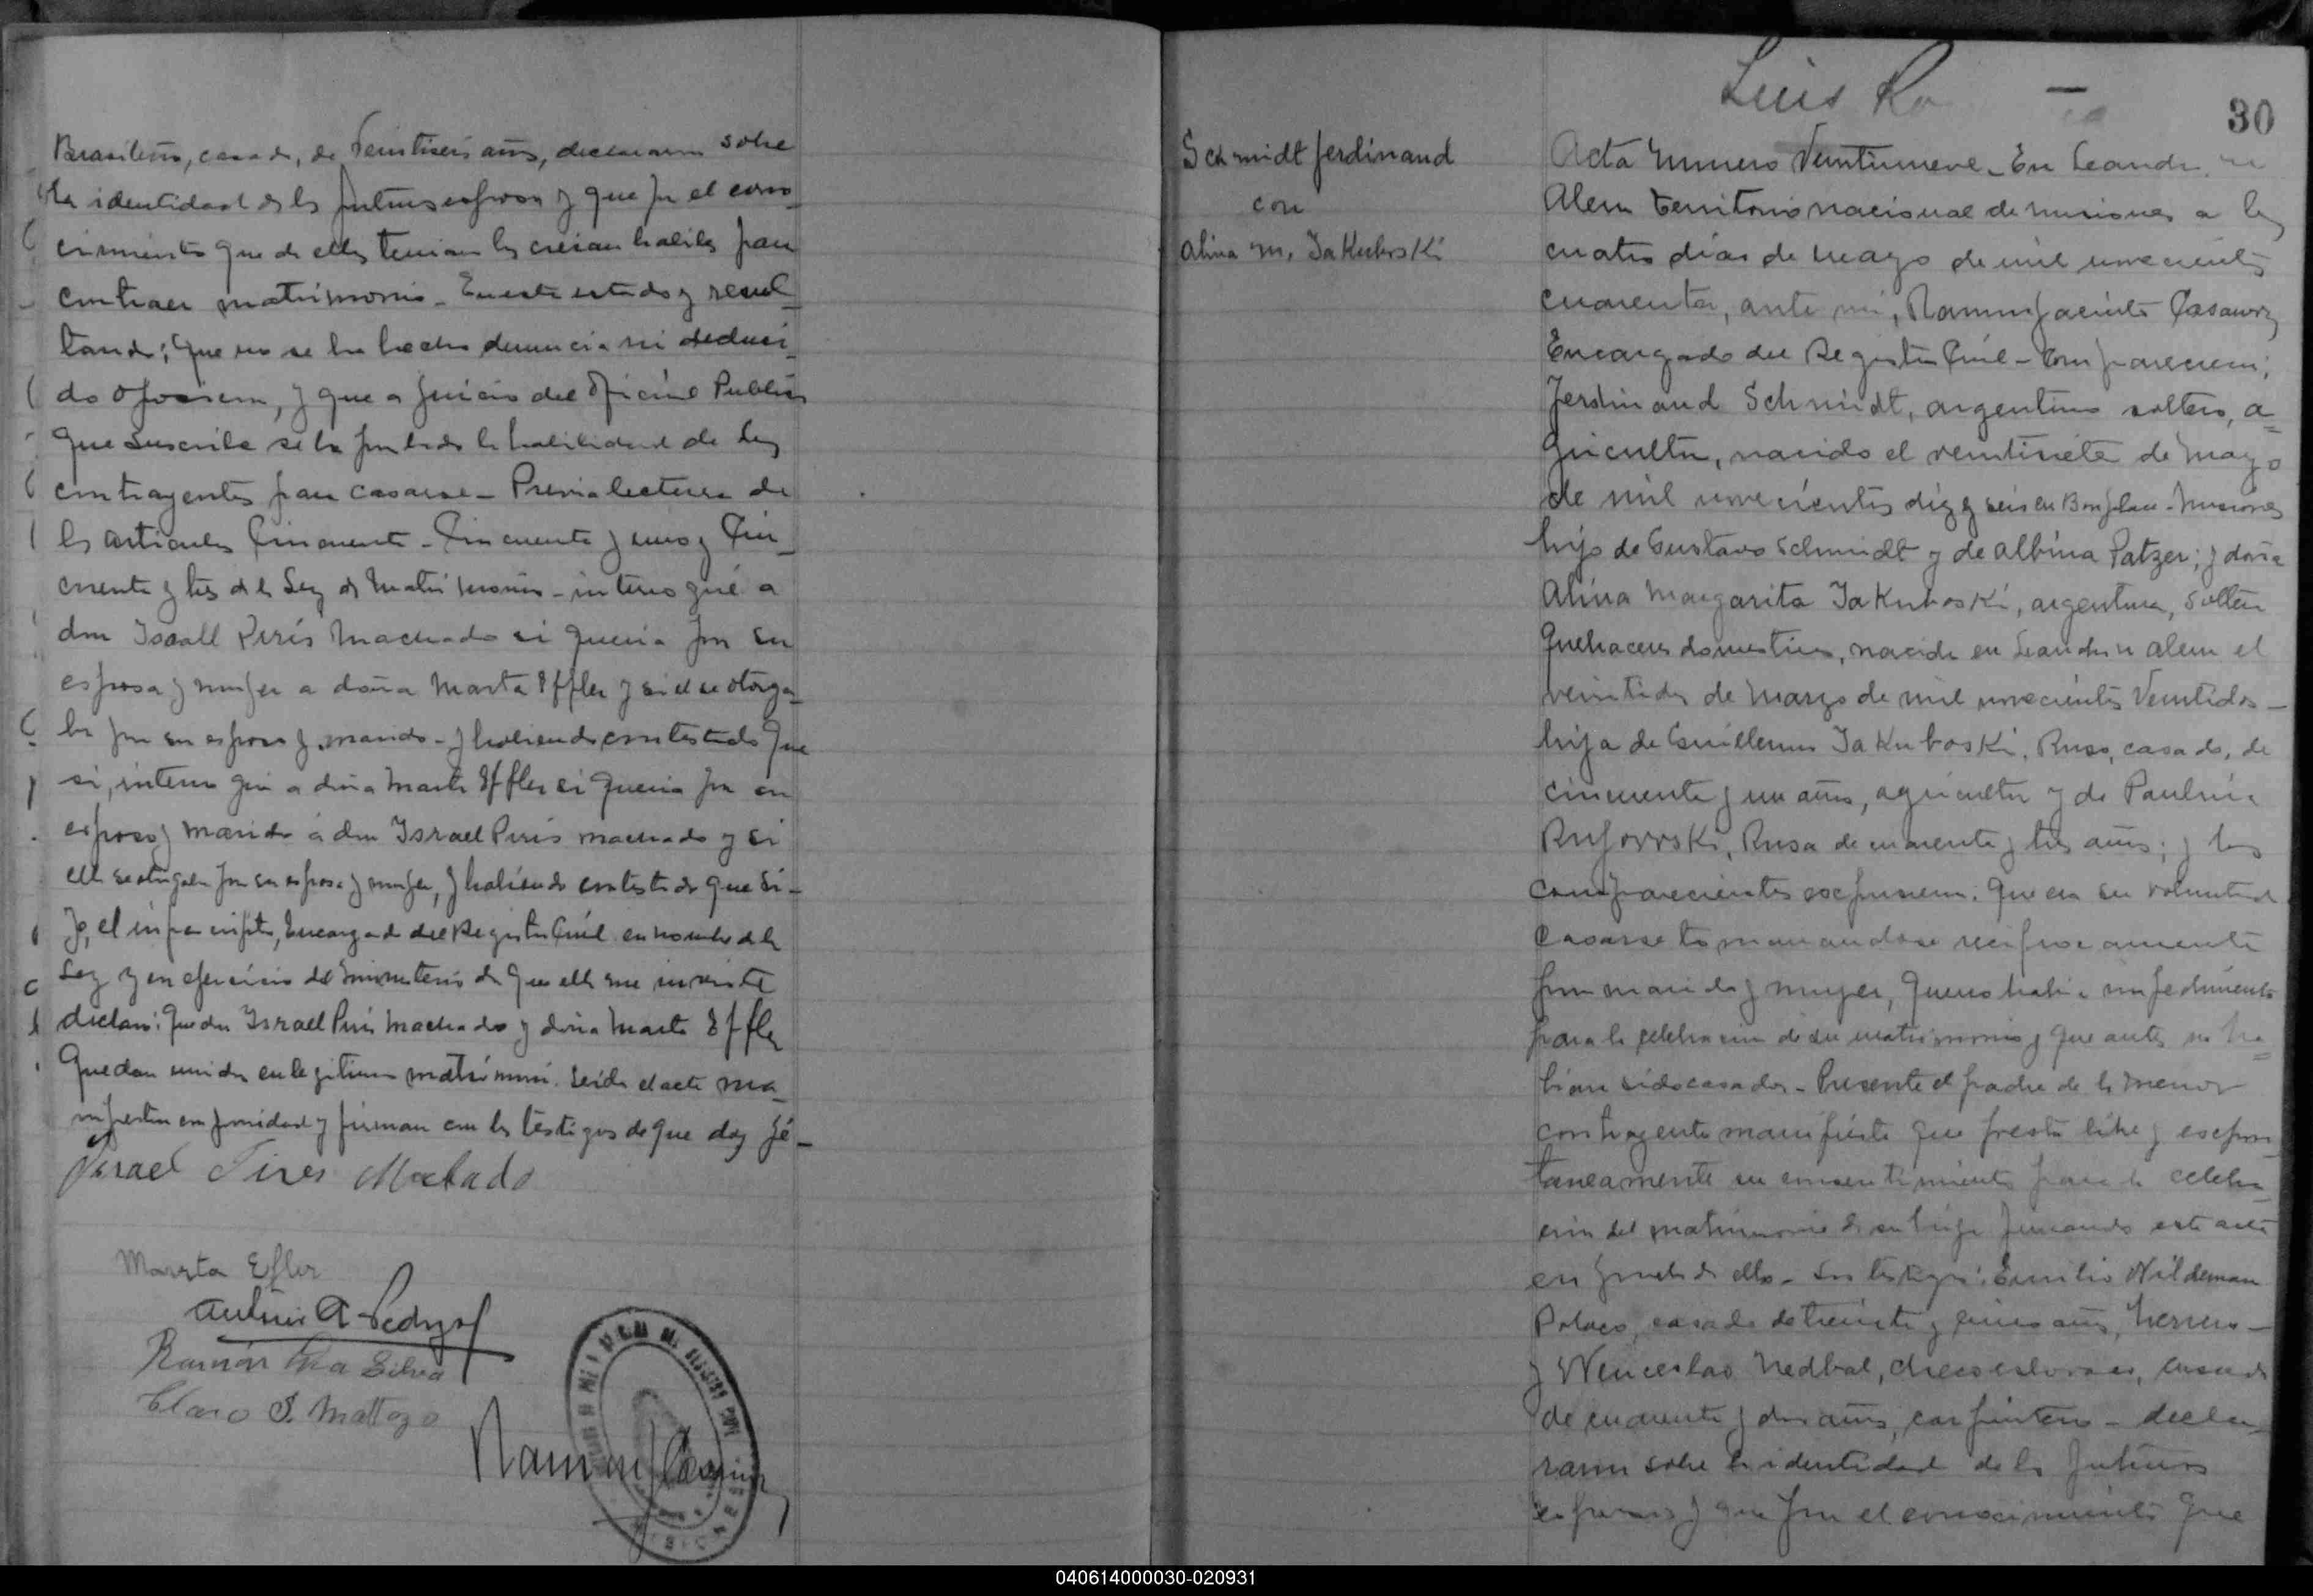 Brasileño, casado, de Veintiseis años, declararon sobre
la identidad de los futuros esposos y que por el cono-
cimiento que de ellos tenian los creian habiles para
contraer matrimonio - En este estado y resul-
tando; Que no se ha hecho denuncia ni deduci-
do oposicion, y que a juicio del Oficial Publico
que suscribe se ha probado la habilidad de los
contrayentes para casarse - Previa lectura de
los articulos Cincuenta - Cincuenta y uno y Cin-
cuenta y tres de la Ley de Matrimonio - interrogué a
don Israel Pirés Machado si queria por su
esposa y mujer a doña Marta Effler y si él se otorga-
ba por su esposo y marido - y habiendo contestado que
si, interrogué a doña Marta Effler si queria por su
esposo y marido á don Israel Pires Machado y si
ella se otorgaba por su esposa y mujer, y habiendo contestado que si -
Yo, el infrascripto, Encargado del Registro Civil en nombre de la
Ley y en ejercicio del ministerio de que ella me inviste
declaro: Que don Israel Pires Machado y doña Marta Effler
quedan unidos en legitimo matrimonio. Leida el acta ma-
nifiestan conformidad y firman con los testigos de que doy fé -
Israel Pires Machado
Marta Efler
Antonio A
Ramón Silva
Claro S. Mattozo
Luis
30
Schmidt Ferdinand
con
Alina M. Jakuboski
Acta Numero Veintinueve - En Leandro N
Alem Territorio nacional de Misiones a los
cuatro dias de Mayo de mil novecientos
cuarenta, ante mi, Ramon Jacinto
Encargado del Registro Civil - Comparecieron;
Ferdinand Schmidt, argentino soltero, a-
gricultor, nacido el veintisiete de Mayo
de mil novecientos diez y seis en Bonplan - Misiones
hijo de Gustavo Schmidt y de Albina Patzer; y doña
Alina Margarita Jakuboski, argentina, soltera
quehaceres domesticos, nacida en Leandro N Alem el
veintidos de Marzo de mil novecientos Veintidos -
hija de Guillermo Jakuboski, Ruso, casado, de
cincuenta y un años, agricultor y de Paulina
Rusa de cuarenta y tres años; y los
comparecientes expusieron: Que era su voluntad
casarse tomanandose reciprocamente
por marido y mujer, que no habia impedimento
para la celebracion de su matrimonio y que antes no ha-
bian sido casados - Presente el padre de la menor
contrayente manifiesta que presta libre y espon-
taneamente su consentimiento para la celebra-
cion del matrimonio de su hija firmando esta acta
en prueba de ello - Los testigos: Emilio Wildeman
Polaco, casado de treinta y cinco años, herrero -
y Wenceslao Nedbal, checoeslovaco, casado
de cuarenta y dos años, carpintero - decla-
raron sobre la identidad de los futuros
esposos y que por el conocimiento que
040614000030-020931